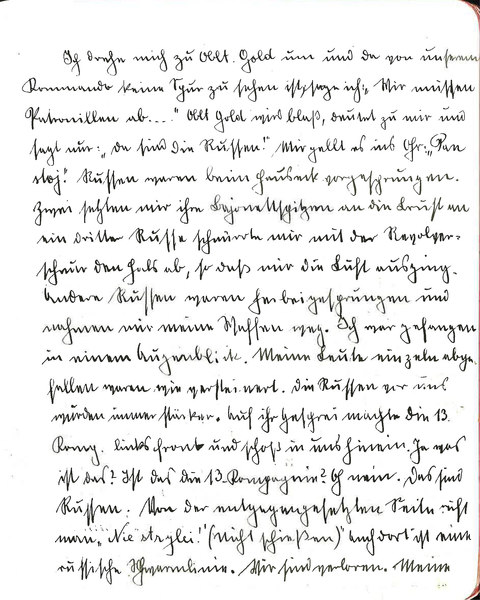 Ich drehe mich zu Oblt. Gold um und da von unserem
Kommando keine Spur zu sehen ist, sage ich: „Wir müssen
Patrouillen ab...." Oblt Gold wird blaß, deutet zu mir und
sagt nur: „Da sind die Russen!" Mir gellt es ins Ohr: „Pan
stoj." Russen waren beim Hauseck vorgesprungen.
Zwei setzten mir ihre Bajonettspitzen an die Brust an
ein dritter Russe schnürrte mir mit der Revolver-
schnur den Hals ab, so daß mir die Luft ausging.
Andere Russen waren herbeigesprungen und
nahmen mir meine Waffen weg. Ich war gefangen
in einem Augenblick. Meine Leute einzeln abge-
fallen waren wie versteinert. Die Russen vor uns
wurden immer stärker. Auf ihr Geschrei machte die 13.
Komp. linksfront und schoß in uns hinein. Ja was
ist das? Ist das die 13. Kompagnie? Oh nein. Das sind
Russen. Von der entgegengesetzten Seite ruft
man „Nie strzlei!" (nicht schießen) auch dort ist eine
russische Schwarmlinie. Wir sind verloren. Meine